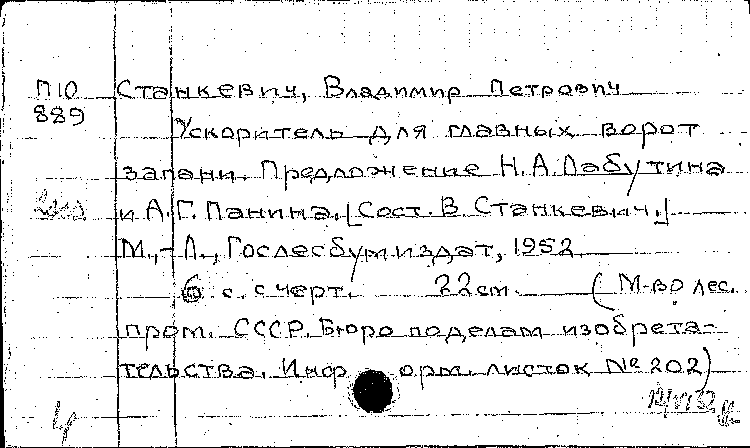 П10 Станкевич, Владимир Петрович
889
Ускоритель для главных ворот
запани. Предложение Н.А. Лабутина
и А.Г. Панина. [Сост. В. Станкевич.]
М.,-Л., Гослесбумиздат, 1952
6 с. с черт. 22см. (М-во лес.
пром. СССР. Бюро по делам изобрета-
тельства. Информ. листок № 202)